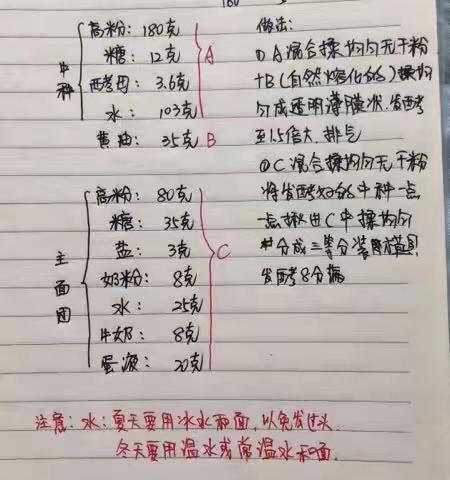 180
中种
高粉: 180克
糖: 12克
酵母: 3.6克
水: 103克
A
黄油: 35克 B
主面团
高粉: 80克
糖: 35克
盐: 3克
奶粉: 8克
水: 25克
牛奶: 8克
蛋液: 20克
C
做法:
① A混合揉均匀无干粉
+B(自然熔化的)揉均
匀成透明薄膜状.发酵
至1.5倍大.排气
② C混合揉均匀无干粉
将发酵好的中种一点
一点揪出C中揉均匀
分成三等分装模具
发酵8分满
注意: 水: 夏天要用冰水和面,以免发过头.
冬天要用温水或常温水和面.